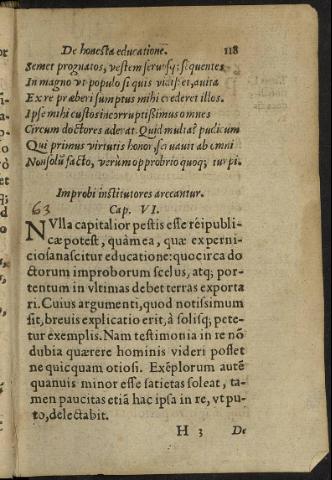 De honesta educatione. 118
Semet prognatos, vestem seruosq; sequentes
In magno vt populo si quis vidisset, auita
Ex re præberi sumptus mihi crederet illos.
Ipse mihi custos incorruptissimus omnes
Circum doctores aderat. Quid multa? pudicum
Qui primus virtutis honor, seruauit ab omni
Non solũ facto, verùm opprobrio quoq; turpi.
Improbi institutores arceantur.
63 Cap. VI.
NVlla capitalior pestis esse rei publi-
cæ potest, quàm ea, quæ ex perni-
ciosa nascitur educatione: quocirca do
ctorum improborum scelus, atq; por-
tentum in vltimas debet terras exporta
ri. Cuius argumenti, quod notissimum
sit, breuis explicatio erit, à solisq; pete-
tur exemplis. Nam testimonia in re nõ
dubia quærere hominis videri posset
ne quicquam otiosi. Exẽplorum autẽ
quanuis minor esse satietas soleat, ta-
men paucitas etiã hac ipsa in re, vt pu-
to, delectabit.
H 3 De